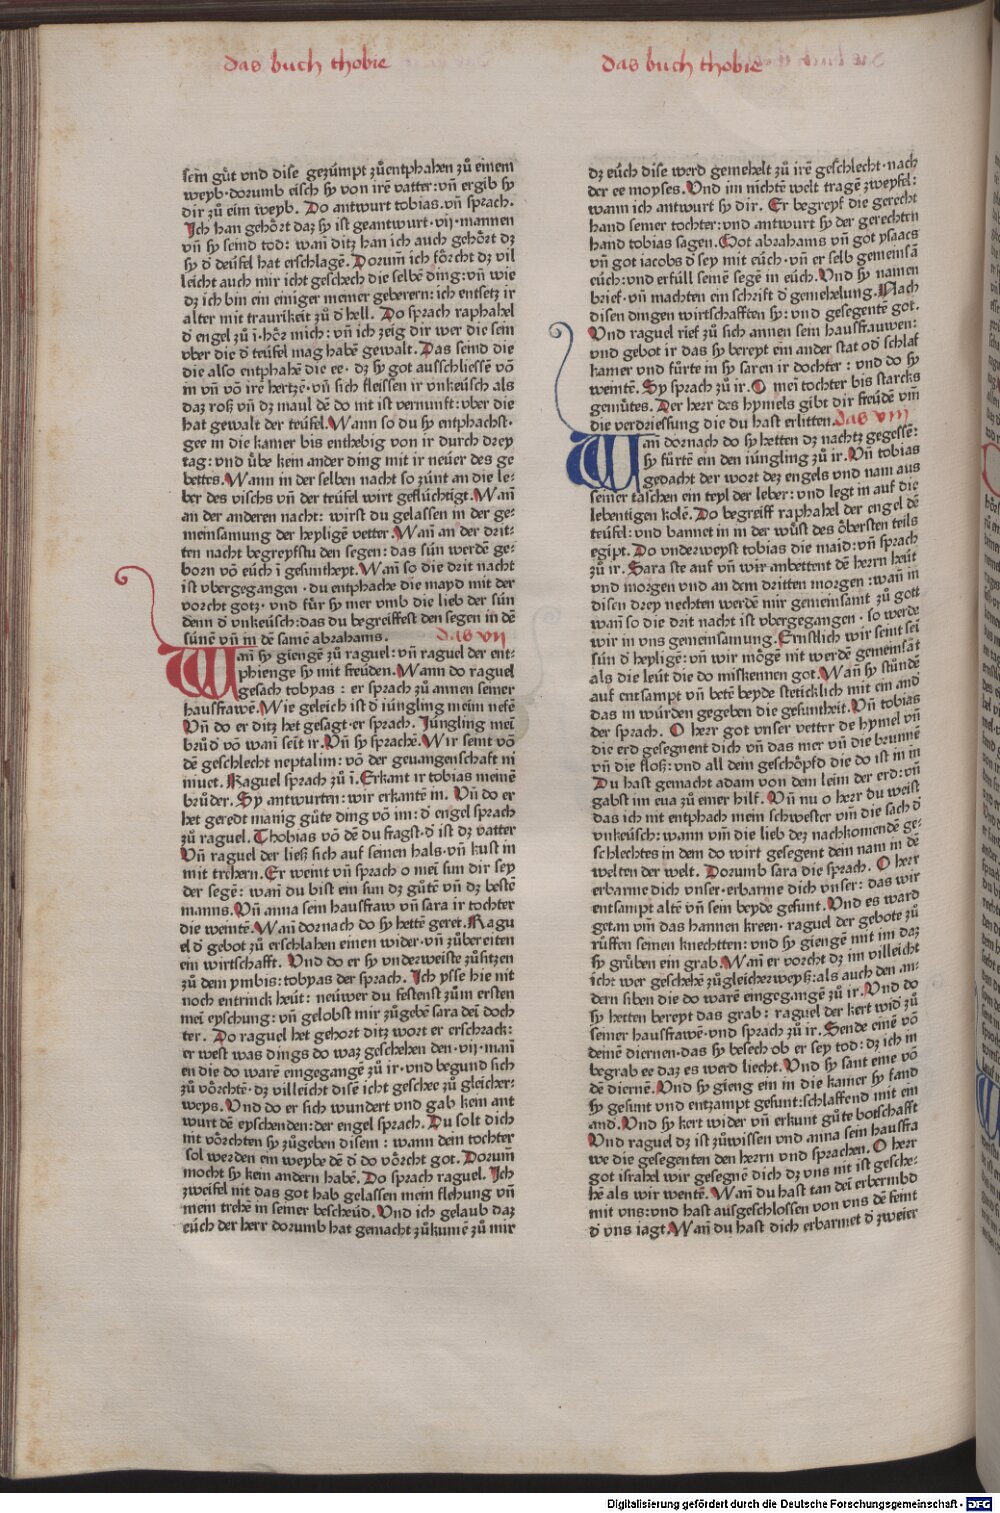 das buch thobie
das buch thobie
sein gůt vnd dise gezúmpt zůentphahen zů einem
weyb·dorumb eisch sy von irē vatter:vn̄ ergib sy
dir zů eim weyb. Do antwurt tobias.vn̄ sprach.
Ich han gehȯrt daz sy ist geantwurt·vij·mannen
vn̄ sy seind tod: wan̄ ditz han ich auch gehȯrt dz
sy d̄ deúfel hat erschlagē. Dorum̄ ich fȯrcht dz vil
leicht auch mir icht geschech die selbē ding:vn̄ wie
dz ich bin ein einiger meiner geberern:ich entsetz ir
alter mit traurikeit zů d̄ hell. Do sprach raphahel
d̄ engel zů ī·hȯr mich:vn̄ ich zeig dir wer die sein
vber die d̄ teúfel mag habē gewalt. Das seind die
die also entphahē die ee· dz sy got ausschliessē vō
in vn̄ vō irē hertzē·vn̄ sich fleissen ir vnkeúsch als
daz roß vn̄ dz maul dē do nit ist vernunft:vber die
hat gewalt der teúfel. Wann so du sy entphachst·
gee in die kamer bis enthebig von ir durch drey
tag:vnd úbe kein ander ding mit ir neúer des ge
bettes. Wann in der selben nacht so zúnt an die le-
ber des vischs vn̄ der teúfel wirt geflúchtigt. Wan̄
an der anderen nacht: wirst du gelassen in der ge-
meinsamung der heyligē vetter. Wan̄ an der drit-
ten nacht begreyfstu den segen: das sún werdē ge-
born vō eúch ī gesuntheyt. Wan̄ so die drit nacht
ist vbergegangen · du entphache die mayd mit der
vorcht gotz· vnd fúr sy mer vmb die lieb der sún
denn d̄ vnkeúsch:das du begreiffest den segen in dē
súnē vn̄ in dē samē abrahams. das vij
Wan̄ sy giengē zů raguel:vn̄ raguel der ent-
phienge sy mit freúden. Wann do raguel
gesach tobyas : er sprach zů annen seiner
hausfrawē. Wie geleich ist d̄ iúngling meim nefē
Vn̄ do er ditz het gesagt·er sprach. Júngling mei
brůd̄ vō wan̄ seit ir. Vn̄ sy sprachē. Wir seint vō
dē geschlecht neptalim: vō der geuangenschaft ni
niuet. Raguel sprach zů ī. Erkant ir tobias meinē
brůder. Sy antwurten:wir erkantē in. Vn̄ do er
het geredt manig gúte ding vō im:d̄ engel sprach
zů raguel. Thobias vō dē du fragst·d̄ ist dz vatter
Vn̄ raguel der ließ sich auf seinen hals·vn̄ kust in
mit trehern. Er weint vn̄ sprach o mei sun dir sey
der segē: wan̄ du bist ein sun dz gůtē vn̄ dz bestē
manns. Vn̄ anna sein hausfraw vn̄ sara ir tochter
die weintē. Wan̄ dornach do sy hettē geret. Ragu
el d̄ gebot zů erschlahen einen wider·vn̄ zůbereiten
ein wirtschafft. Vnd do er sy vnderweiste zůsitzen
zů dem ymbis:tobyas der sprach. Ich ysse hie nit
noch entrinck heút: neúwer du festenst zům ersten
mei eyschung:vn̄ gelobst mir zůgebē sara dei doch
ter. Do raguel het gehort ditz wort er erschrack:
er west was dings do waz geschehen den·vij·man̄
en die do warē eingegangē zů ir·vnd begund sich
zů vȯrchtē·dz villeicht disē icht geschee zů gleicher-
weys. Vnd do er sich wundert vnd gab kein ant
wurt dē eyschenden:der engel sprach. Du solt dich
nit vȯrchten sy zůgeben disem : wann dein tochter
sol werden ein weybe dē d̄ do vȯrcht got. Dorum̄
mocht sy kein andern habē. Do sprach raguel. Ich
zweifel nit das got hab gelassen mein flehung vn̄
mein trehē in seiner bescheúd. Vnd ich gelaub daz
eúch der herr dorumb hat gemacht zůkumē zů mir
dz eúch dise werd gemehelt zů irē geschlecht·nach
der ee moyses. Vnd im nichtē welt tragē zweyfel:
wann ich antwurt sy dir. Er begreyf die gerecht
hand seiner tochter:vnd antwurt sy der gerechten
hand tobias sagen. Got abrahams vn̄ got ysaacs
vn̄ got iacobs d̄ sey mit eúch·vn̄ er selb gemeinsā
eúch:vnd erfúll seinē segē in eúch. Vnd sy namen
brief·vn̄ machten ein schrift d̄ gemehelung. Nach
disen dingen wirtschafften sy:vnd gesegentē got.
Vnd raguel rief zů sich annen sein hausfrauwen:
vnd gebot ir das sy bereyt ein ander stat od̄ schlaf
kamer vnd fúrte in sy saren ir dochter : vnd do sy
weintē. Sy sprach zů ir. O mei tochter bis starcks
gemůtes. Der herr des hymels gibt dir freúdē vm̄
die verdriessung die du hast erlitten. das viij
Wan̄ dornach do sy hetten dz nachtz gegessē:
sy fúrtē ein den iúngling zů ir. Vn̄ tobias
gedacht der wort dez engels vnd nam aus
seiner taschen ein teyl der leber:vnd legt in auf die
lebentigen kolē. Do begreiff raphahel der engel dē
teúfel:vnd bannet in in der wůst des ȯbersten teils
egipt. Do vnderweyst tobias die maid:vn̄ sprach
zů ir. Sara ste auf vn̄ wir anbettent dē herrn heút
vnd morgen vnd an dem dritten morgen:wan̄ in
disen drey nechten werdē mir gemeinsamt zů gott
wan̄ so die drit nacht ist vbergegangen·so werde
wir in vns gemeinsamung. Ernstlich wir seint sei
sún d̄ heyligē:vn̄ wir mȯgē nit werdē gemeinsāt
als die leút die do miskennen got. Wan̄ sy stúndē
auf entsampt vn̄ betē beyde stetticklich mit ein and
das in wúrden gegeben die gesuntheit. Vn̄ tobias
der sprach. O herr got vnser vetter de hymel vn̄
die erd gesegnent dich vn̄ das mer vn̄ die brunnē
vn̄ die floß:vnd all dein geschȯpfd die do ist in in
Du hast gemacht adam von dem leim der erd:vn̄
gabst im eua zů einer hilf. Vn̄ nu o herr du weist
das ich nit entphach mein schwester vm̄ die sach d̄
vnkeúsch:wann vm̄ die lieb dez nachkomendē ge-
schlechtes in dem do wirt gesegent dein nam in dē
welten der welt. Dorumb sara die sprach. O herr
erbarme dich vnser·erbarme dich vnser: das wir
entsampt altē vn̄ sein beyde gesunt. Vnd es ward
getan vm̄ das hannen kreen· raguel der gebote zů
růffen seinen knechtten:vnd sy giengē mit im daz
sy grůben ein grab. Wan̄ er vorcht dz im villeicht
icht wer geschehē zůgleicherweyß:als auch den an-
dern siben die do warē eingegangē zů ir. Vnd do
sy hetten bereyt das grab: raguel der kert wid̄ zů
seiner hausfrawē·vnd sprach zů ir. Sende einē vō
deinē diernen·das sy besech ob er sey tod:dz ich in
begrab ee daz es werd liecht. Vnd sy sant eine vō
dē diernē. Vnd sy gieng ein in die kamer sy fand
sy gesunt vnd entzampt gesunt:schlaffend mit ein
and. Vnd sy kert wider vn̄ erkunt gůte botschafft
Vnd raguel dz ist zůwissen vnd anna sein hausfra
we die gesegenten den herrn vnd sprachen. O herr
got israhel wir gesegnē dich dz vns nit ist gesche-
hē als wir wentē. Wan̄ du hast tan dei erbermbd
mit vns:vnd hast ausgeschlossen von vns dē feint
d̄ vns iagt. Wan̄ du hast dich erbarmet d̄ zweier
Digitalisierung gefördert durch die Deutsche Forschungsgemeinschaft - DFG